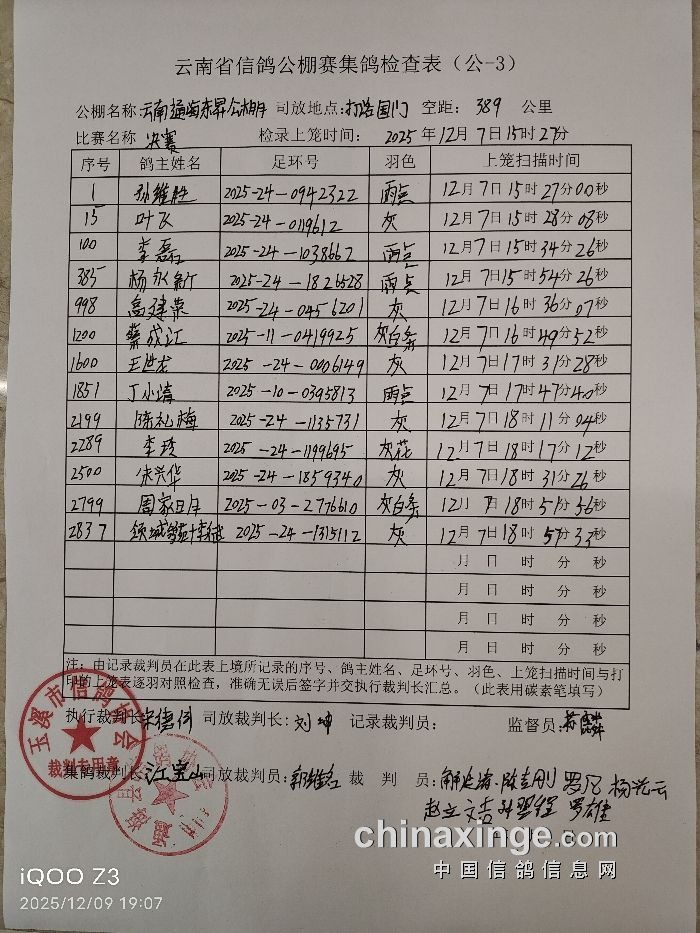 云南省信鸽公棚赛集鸽检查表（公-3）
公棚名称：云南通海东昇公棚 司放地点：打洛国门 空距：389 公里
比赛名称 决赛 检录上笼时间：2025年12月7日15时27分
序号 鸽主姓名 足环号 羽色 上笼扫描时间
1 孙维胜 2025-24-0942322 雨点 12月7日15时27分00秒
15 叶飞 2025-24-0119612 灰 12月7日15时28分08秒
100 李磊 2025-24-1038662 雨点 12月7日15时34分26秒
385 杨永新 2025-24-1826528 雨点 12月7日15时54分26秒
998 高建荣 2025-24-0456201 灰 12月7日16时36分07秒
1200 蔡成江 2025-11-0419925 灰白条 12月7日16时49分52秒
1600 王世龙 2025-24-0006149 灰 12月7日17时31分28秒
1851 丁小清 2025-10-0395813 雨点 12月7日17时47分40秒
2199 陈礼梅 2025-24-1135731 灰 12月7日18时11分04秒
2289 李 2025-24-1199695 灰花 12月7日18时17分12秒
2500 朱兴华 2025-24-1859340 灰 12月7日18时31分26秒
2799 周家 2025-03-2776610 灰白条 12月7日18时51分56秒
2837 2025-24-1315112 灰 12月7日18时57分33秒
月 日 时 分 秒
月 日 时 分 秒
月 日 时 分 秒
月 日 时 分 秒
注：由记录裁判员在此表上境所记录的序号、鸽主姓名、足环号、羽色、上笼扫描时间与打
印的上笼表逐羽对照检查，准确无误后签字并交执行裁判长汇总。（此表用碳素笔填写）
执行裁判长：宋德伟 司放裁判长：刘坤 记录裁判员： 监督员：
玉溪市信鸽协会
裁判专用章
集鸽裁判长：江宝山 司放裁判员： 裁 判 员： 罗凡 杨光云
罗雄
月 日
chinaxinge.com
中国信鸽信息网
iQOO Z3
2025/12/09 19:07